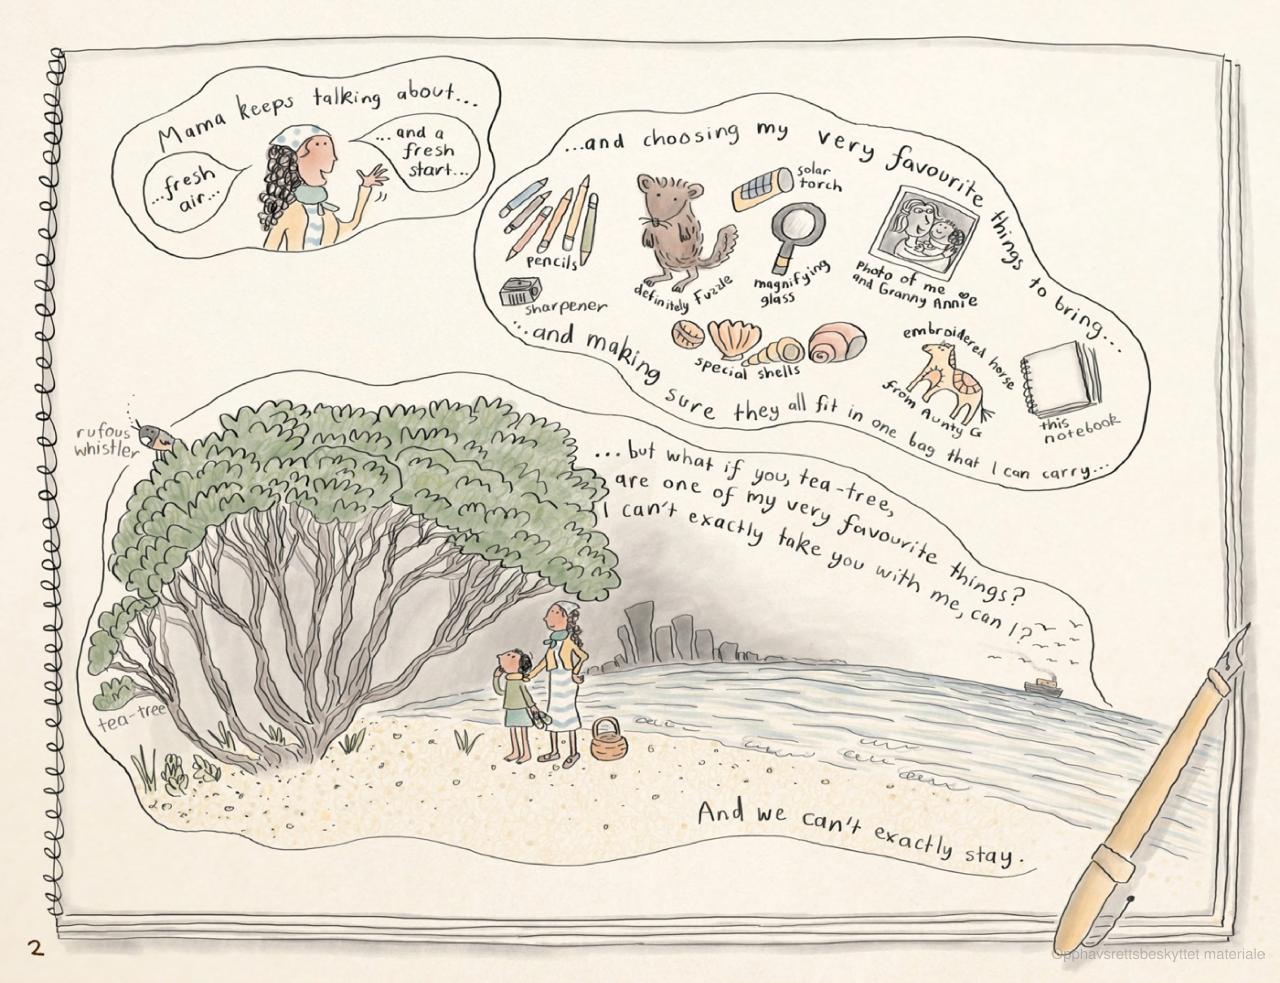 Mama keeps talking about...
...fresh
air...
...and a
fresh
start...
...and choosing my very favourite things to bring...
pencils
sharpener
definitely Fuzzle
solar
torch
magnifying
glass
photo of me
and Granny Annie
special shells
embroidered horse
from Aunty G
this
notebook
...and making sure they all fit in one bag that I can carry...
rufous
whistler
...but what if you, tea-tree,
are one of my very favourite things?
I can't exactly take you with me, can I?
tea-tree
And we can't exactly stay.
2
Opphavsrettsbeskyttet materiale